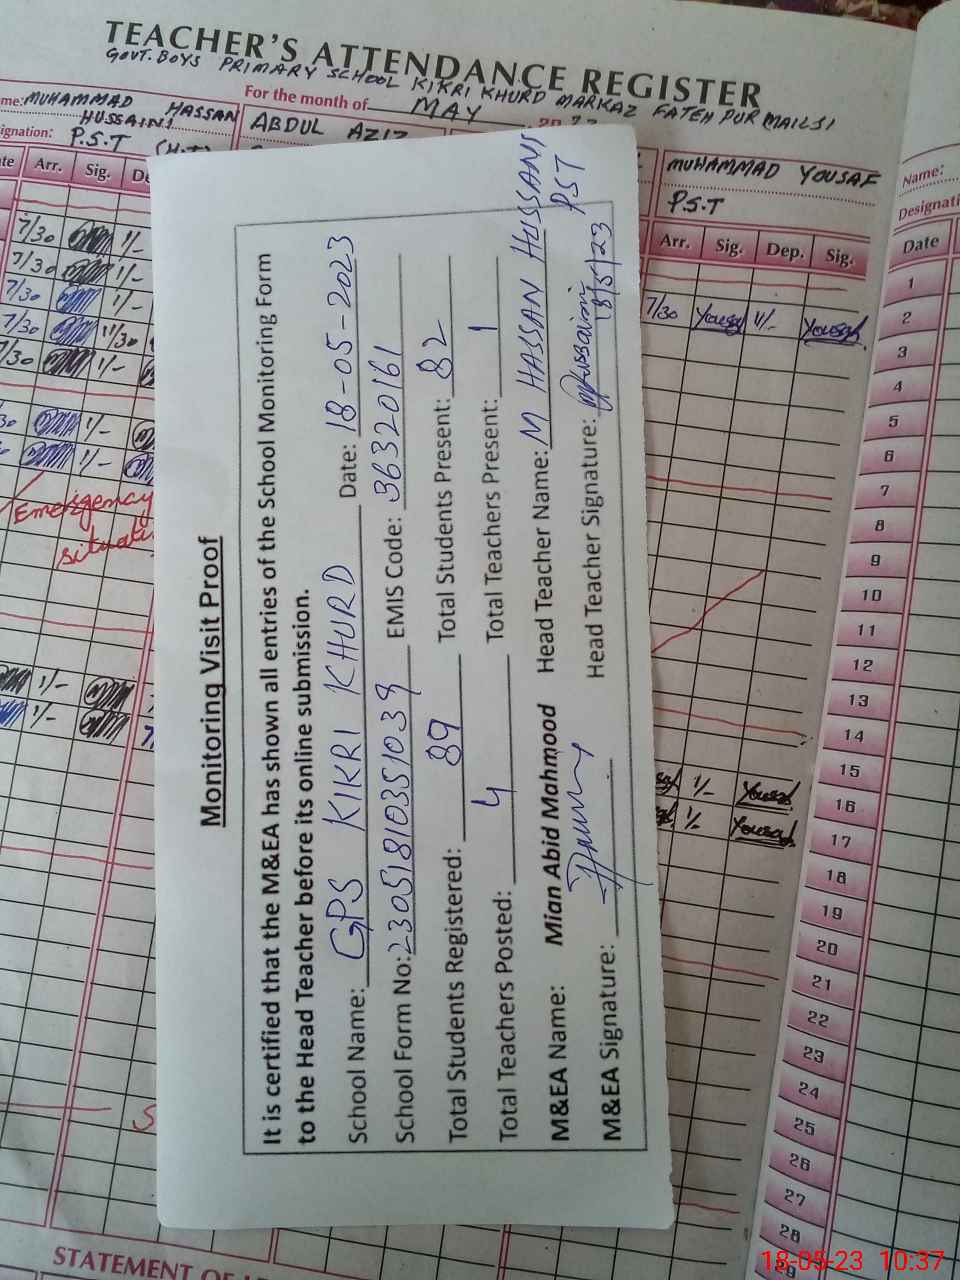 TEACHER'S ATTENDANCE REGISTER
GOVT. BOYS PRIMARY SCHOOL KIKRI KHURD MARKAZ FATEH PUR MAILSI
For the month of MAY
MUHAMMAD HASSAN
HUSSAINI
P.S.T
ABDUL AZIZ
MUHAMMAD YOUSAF
P.S.T
Name:
Designati
Arr. Sig. De
Arr. Sig. Dep. Sig.
Date
7/30 1/-
7/30 1/-
7/30 1/-
7/30 11/30
7/30 1/-
1/-
1/-
Emergency
situati
1/-
1/-
7/30 Yousaf 1/- Yousaf
1/- Yousaf
1/- Yousaf
1
2
3
4
5
6
7
8
9
10
11
12
13
14
15
16
17
18
19
20
21
22
23
24
25
26
27
28
Monitoring Visit Proof
It is certified that the M&EA has shown all entries of the School Monitoring Form
to the Head Teacher before its online submission.
School Name: GPS KIKRI KHURD Date: 18-05-2023
School Form No: 23051810351039 EMIS Code: 36320161
Total Students Registered: 89 Total Students Present: 82
Total Teachers Posted: 4 Total Teachers Present: 1
M&EA Name: Mian Abid Mahmood Head Teacher Name: M HASSAN HUSSANI PST
M&EA Signature: Head Teacher Signature: Hussaini 18/5/23
STATEMENT OF
18-05-23 10:37